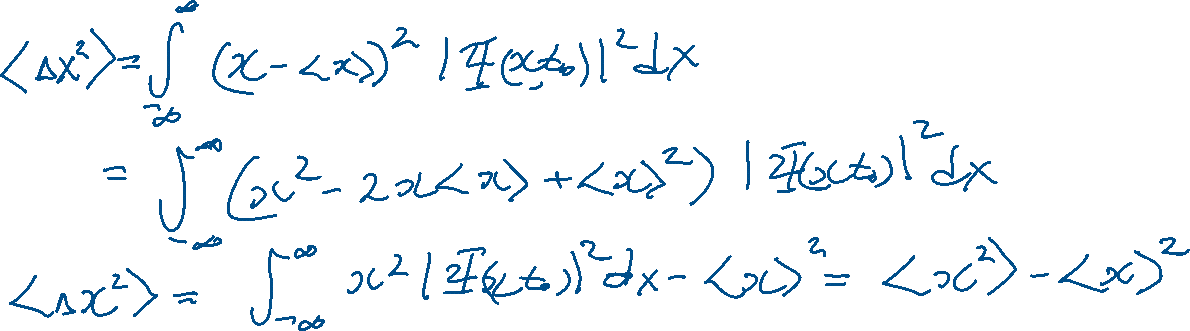 ⟨Δx²⟩ = ∫_{-∞}^{∞} (x - <x>)² |Ψ(x,t₀)|² dx
= ∫_{-∞}^{∞} (x² - 2x<x> + <x>²) |Ψ(x,t₀)|² dx
⟨Δx²⟩ = ∫_{-∞}^{∞} x² |Ψ(x,t₀)|² dx - <x>² = <x²> - <x>²